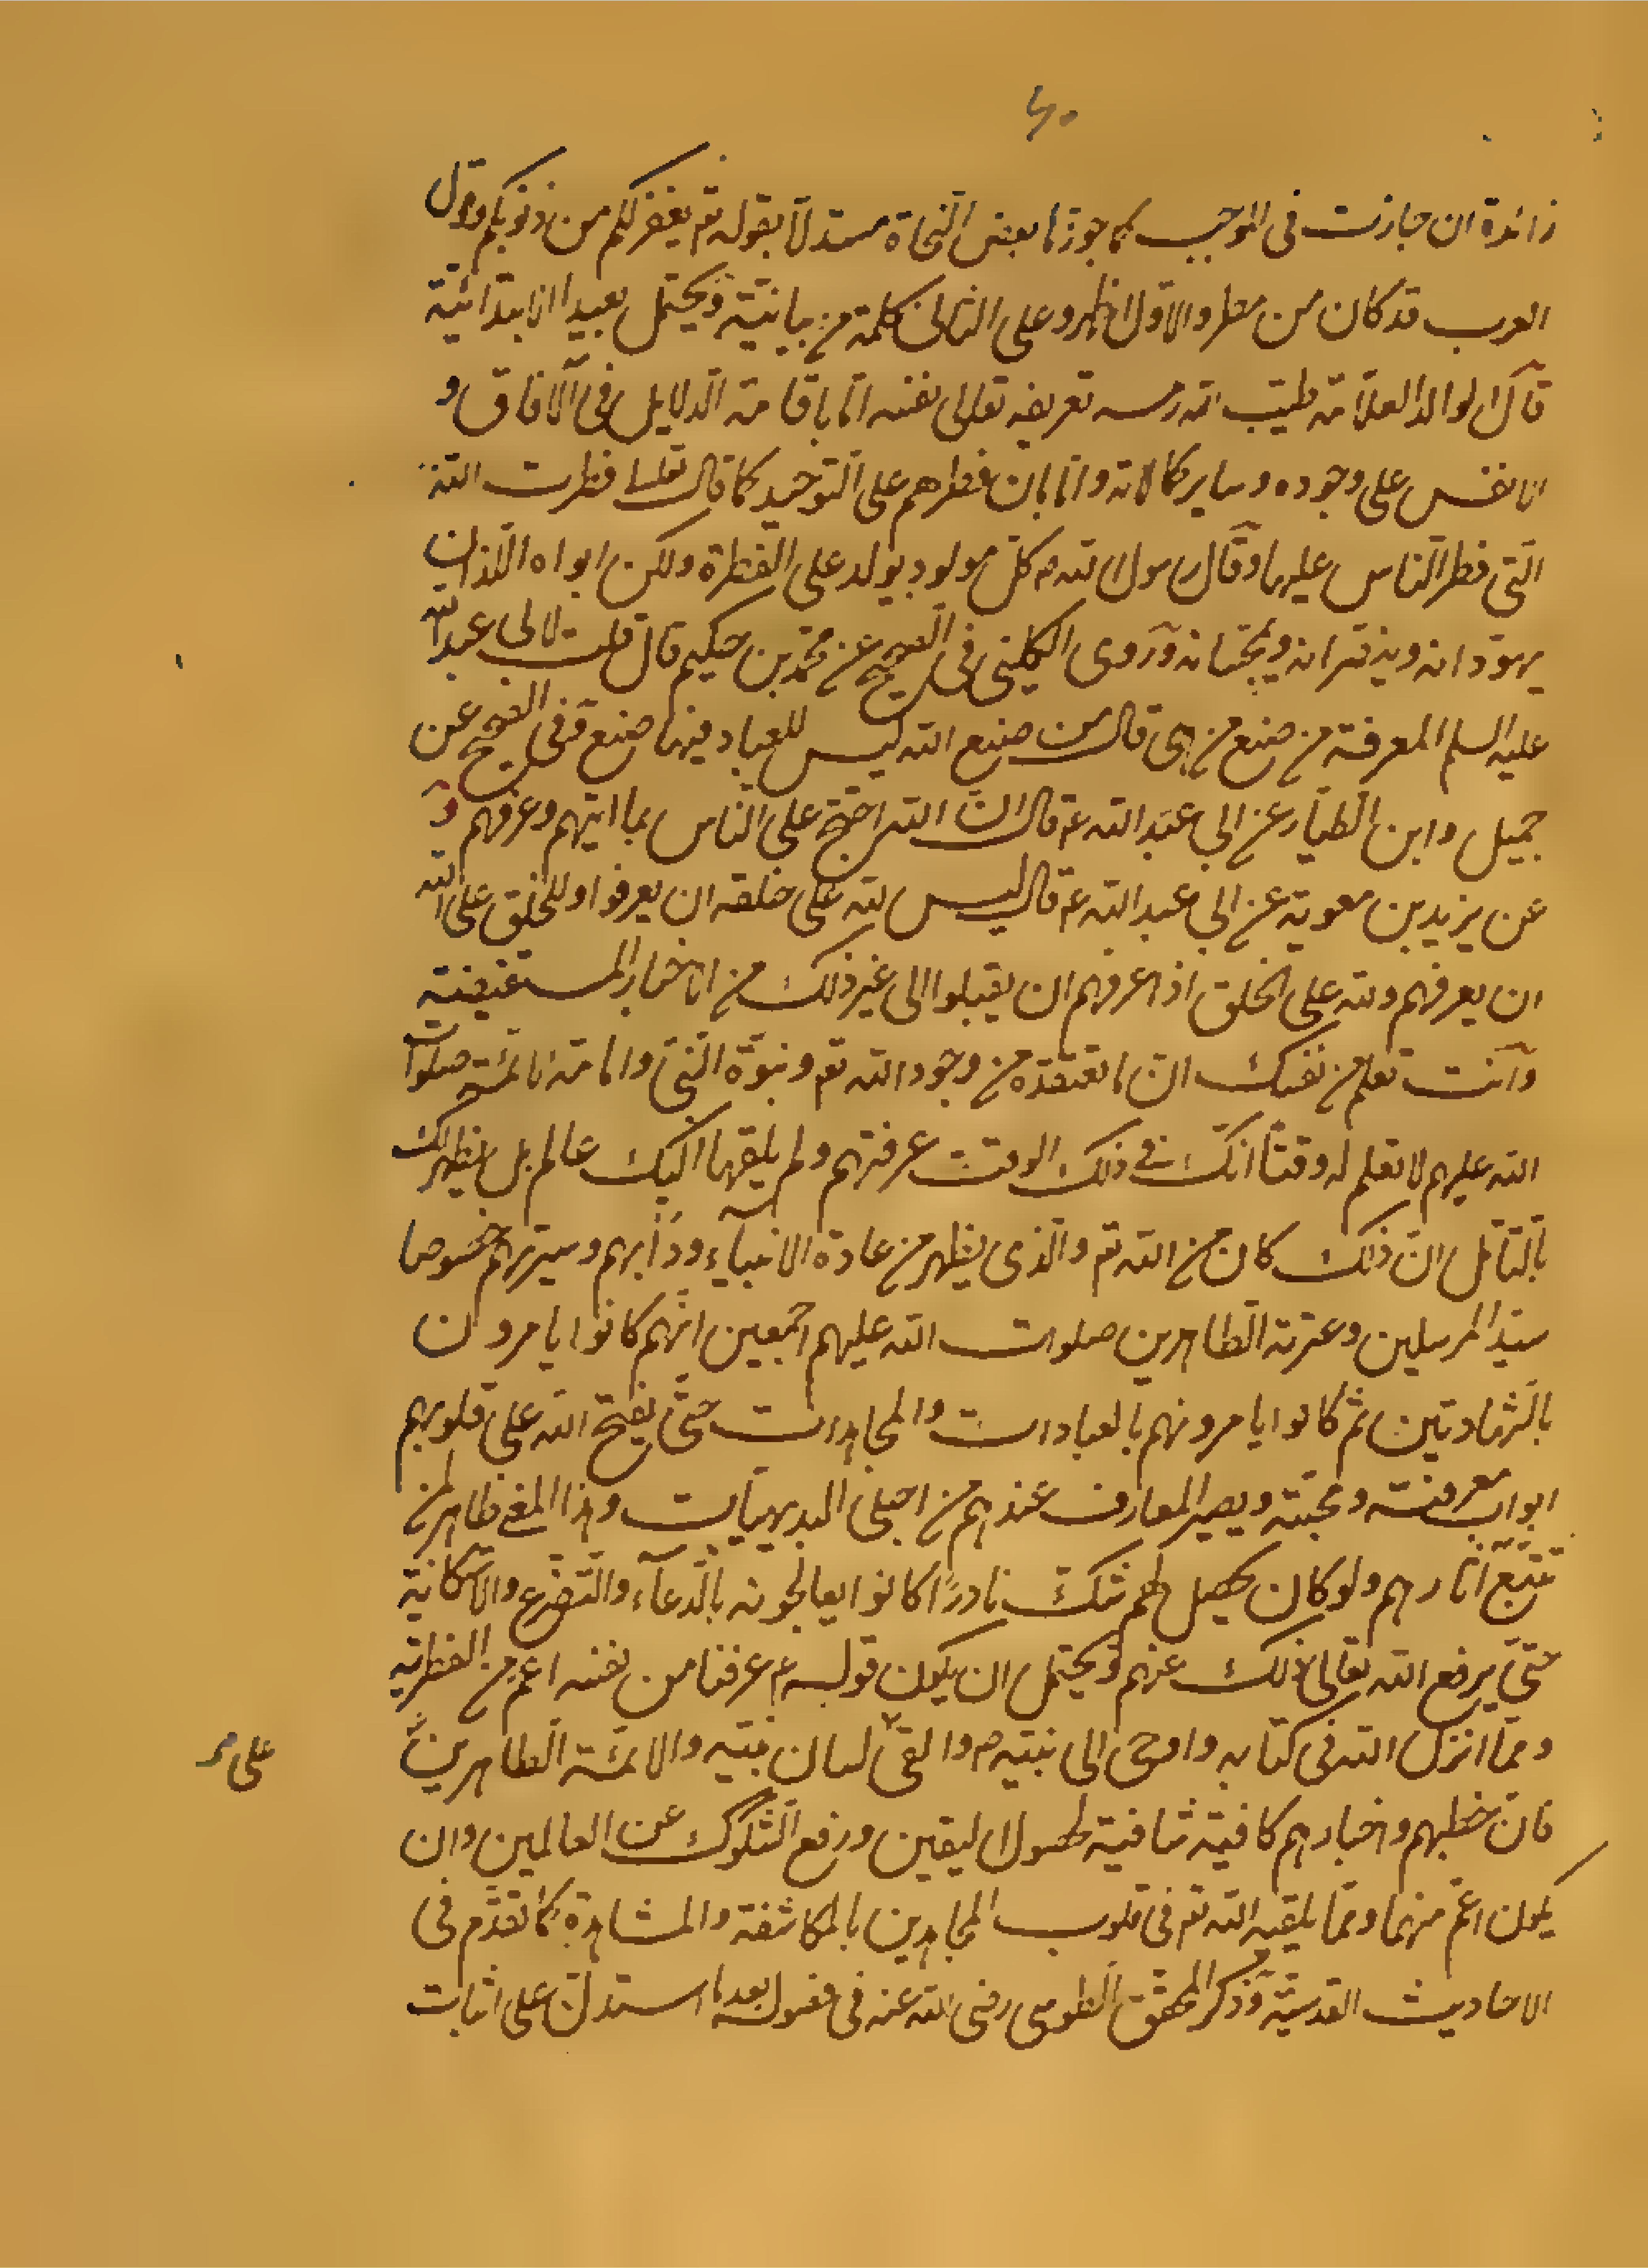 ۶۰
زائدة ان جازت فى الموجب كما جوزها بعض النحاة مستدلا بقوله تع يغفر لكم من ذنوبكم وقول
العرب قد كان من مطر والاول اظهر وعلى الثانى كلمة من بيانيّة ويحتمل بعيدا الابتدائيّة
قال الوالد العلامة طيب الله رمسه تعريفه تعالى نفسه اما باقامة الدلايل فى الآفاق و
الانفس على وجوده وساير كمالاته واما بان فطرهم على التوحيد كما قال تعالى فطرت الله
التى فطر الناس عليها وقال رسول الله ص كلّ مولود يولد على الفطرة ولكن ابواه اللذان
يهوّدانه وينصّرانه ويمجّسانه وروى الكلينى فى الصحيح عن محمد بن حكيم قال قلت لابى عبد الله
عليه السلم المعرفة من صنع من هى قال من صنع الله ليس للعباد فيها صنع وفى الصحيح عن
جميل وابن الطيار عن ابي عبد الله ع قال انّ الله احتج على الناس بما اتيهم وعرفهم و
عن يزيد بن معوية عن ابي عبد الله ع قال ليس لله على خلقه ان يعرفوا وللخلق على الله
ان يعرفهم ولله على الخلق اذا عرفهم ان يقبلوا الى غير ذلك من الاخبار المستفيضة
وانت تعلم من نفسك ان ما تعتقده من وجود الله تع ونبوّة النبيّ وامامة الائمّة صلوات
الله عليهم لا تعلم له وقتاً انك فى ذلك الوقت عرفتهم ولم يلقها اليك عالم بل يظهر لك
بالتأمل انّ ذلك كان من الله تع والذى يظهر من عادة الانبياء ودأبهم وسيرتهم خصوصا
سيّد المرسلين وعترته الطاهرين صلوات الله عليهم اجمعين انهم كانوا يامرون
بالشهادتين ثم كانوا يامرونهم بالعبادات والمجاهدات حتّى يفتح الله على قلوبهم
ابواب معرفته ومحبّته ويصير المعارف عندهم من اجلى البديهيّات وهذا المعنى ظاهر لمن
تتبّع آثارهم ولو كان يحصل لهم شك نادراً كانوا يعالجونه بالدعاء والتضرع والاستكانة
حتّى يرفع الله تعالى ذلك عنهم ويحتمل ان يكون قوله ع عرفنا من نفسه اعم من الفطرية
وممّا انزل الله فى كتابه واوحى الى نبيّه ص والقى لسان نبيّه والائمّة الطاهرين
على
فان خطبهم واخبارهم كافية شافية لحصول اليقين ورفع الشكوك عن العالمين وان
يكون اعمّ منهما وممّا يلقيه الله تع فى قلوب المجاهدين بالمكاشفة والمشاهدة كما تقدّم فى
الاحاديث القدسيّة وذكر المحقق الطوسى رضى الله عنه فى فصوله بعد ما استدل على اثبات